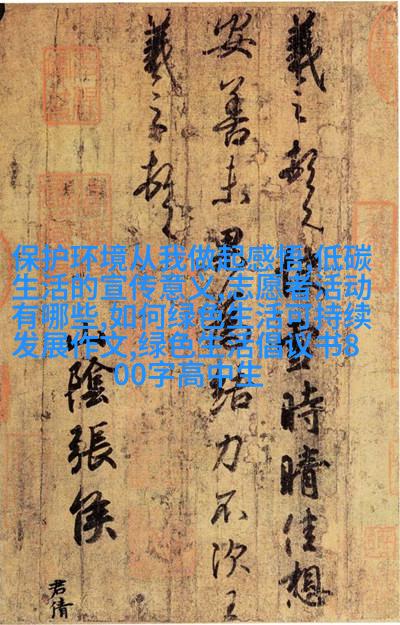 保护环境从我做起感悟,低碳
生活的宣传意义,志愿者活动
有哪些,如何绿色生活可持续
发展作文,绿色生活倡议书8
00字高中生
羲之頓首快雪時晴佳想
安善未果為結力不次王
羲之頓首
山陰張侯
君倩